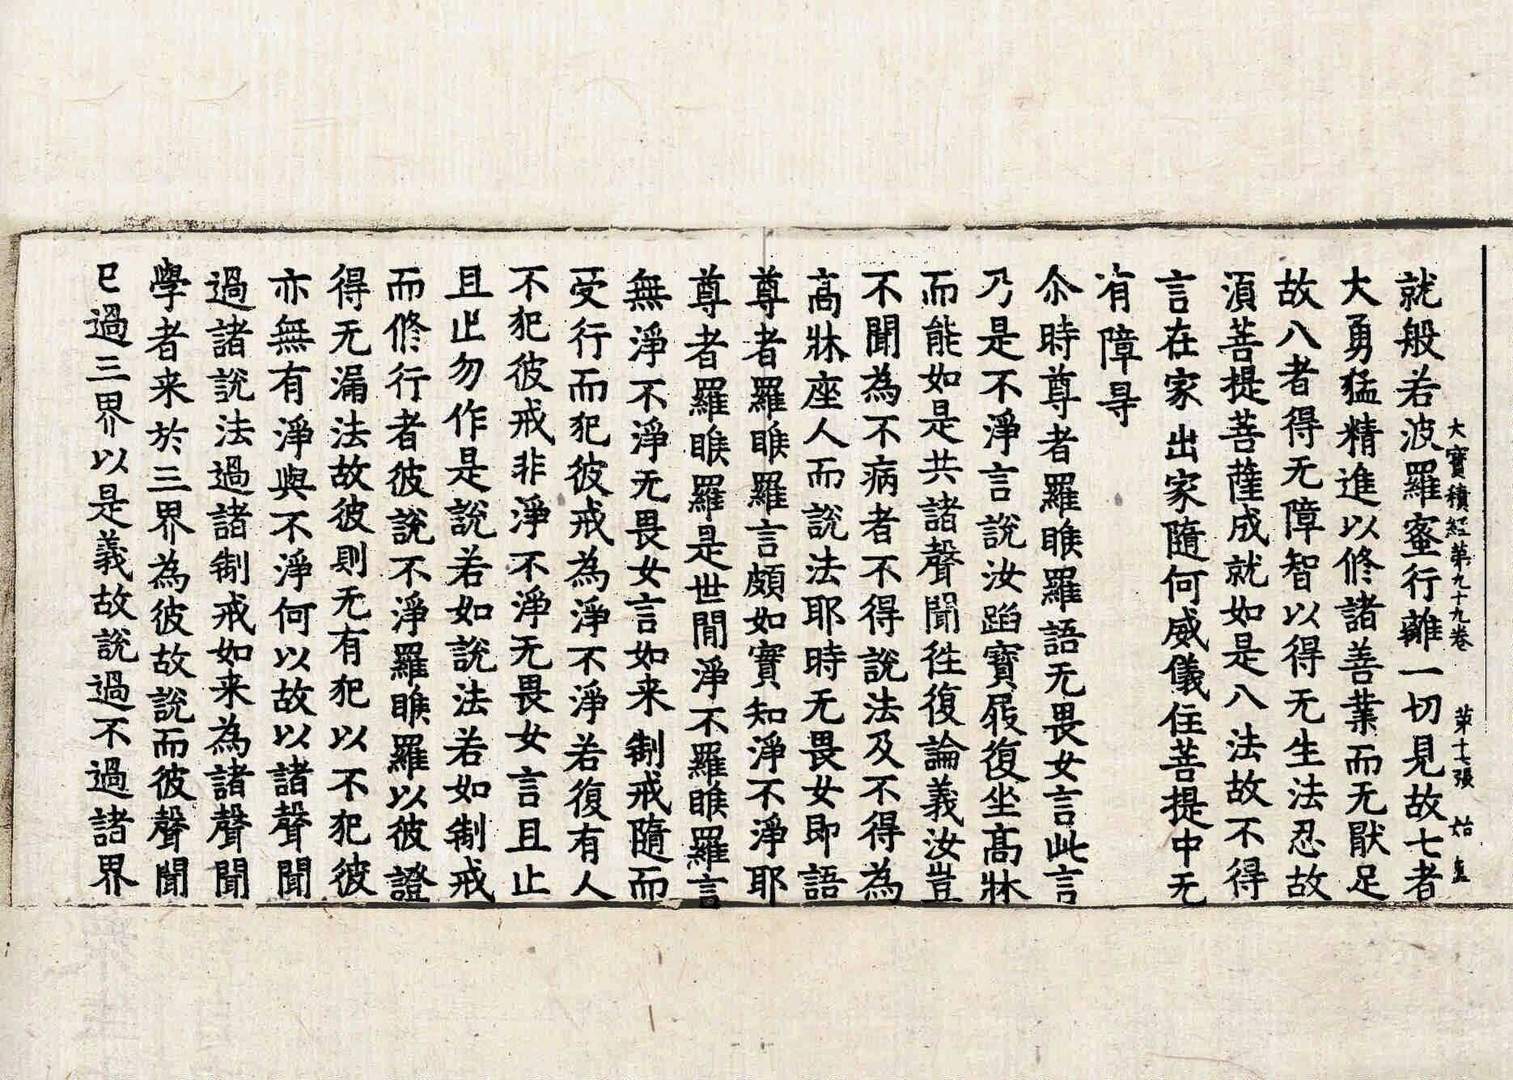 大寶積經第九十九卷 第十七張 始
就般若波羅蜜行離一切見故七者
大勇猛精進以修諸善業而无猒足
故八者得无障智以得无生法忍故
湏菩提菩薩成就如是八法故不得
言在家出家隨何威儀住菩提中无
有障㝵
尒時尊者羅睺羅語无畏女言此言
乃是不淨言說汝蹈寶屐復坐高牀
而能如是共諸聲聞徃復論義汝豈
不聞為不病者不得說法及不得為
高牀座人而說法耶時无畏女即語
尊者羅睺羅言頗如實知淨不淨耶
尊者羅睺羅是世間淨不羅睺羅言
無淨不淨无畏女言如来制戒隨而
受行而犯彼戒為淨不淨若復有人
不犯彼戒非淨不淨无畏女言且止
且止勿作是說若如說法若如制戒
而修行者彼說不淨羅睺羅以彼證
得无漏法故彼則无有犯以不犯彼
亦無有淨與不淨何以故以諸聲聞
過諸說法過諸制戒如来為諸聲聞
學者来於三界為彼故說而彼聲聞
已過三界以是義故說過不過諸界